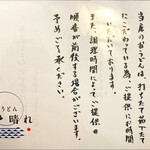 当店のおうどんは、打ちたて茹でたて
にこだわっている為、ご提供にお時間
いただいております。
また、調理時間によってご提供の
順番が前後する場合がございます。
予めご了承ください。
うどん
晴れ